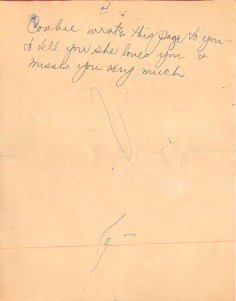 Cookie wrote this page to you -
to tell you she loved you &
misses you very much